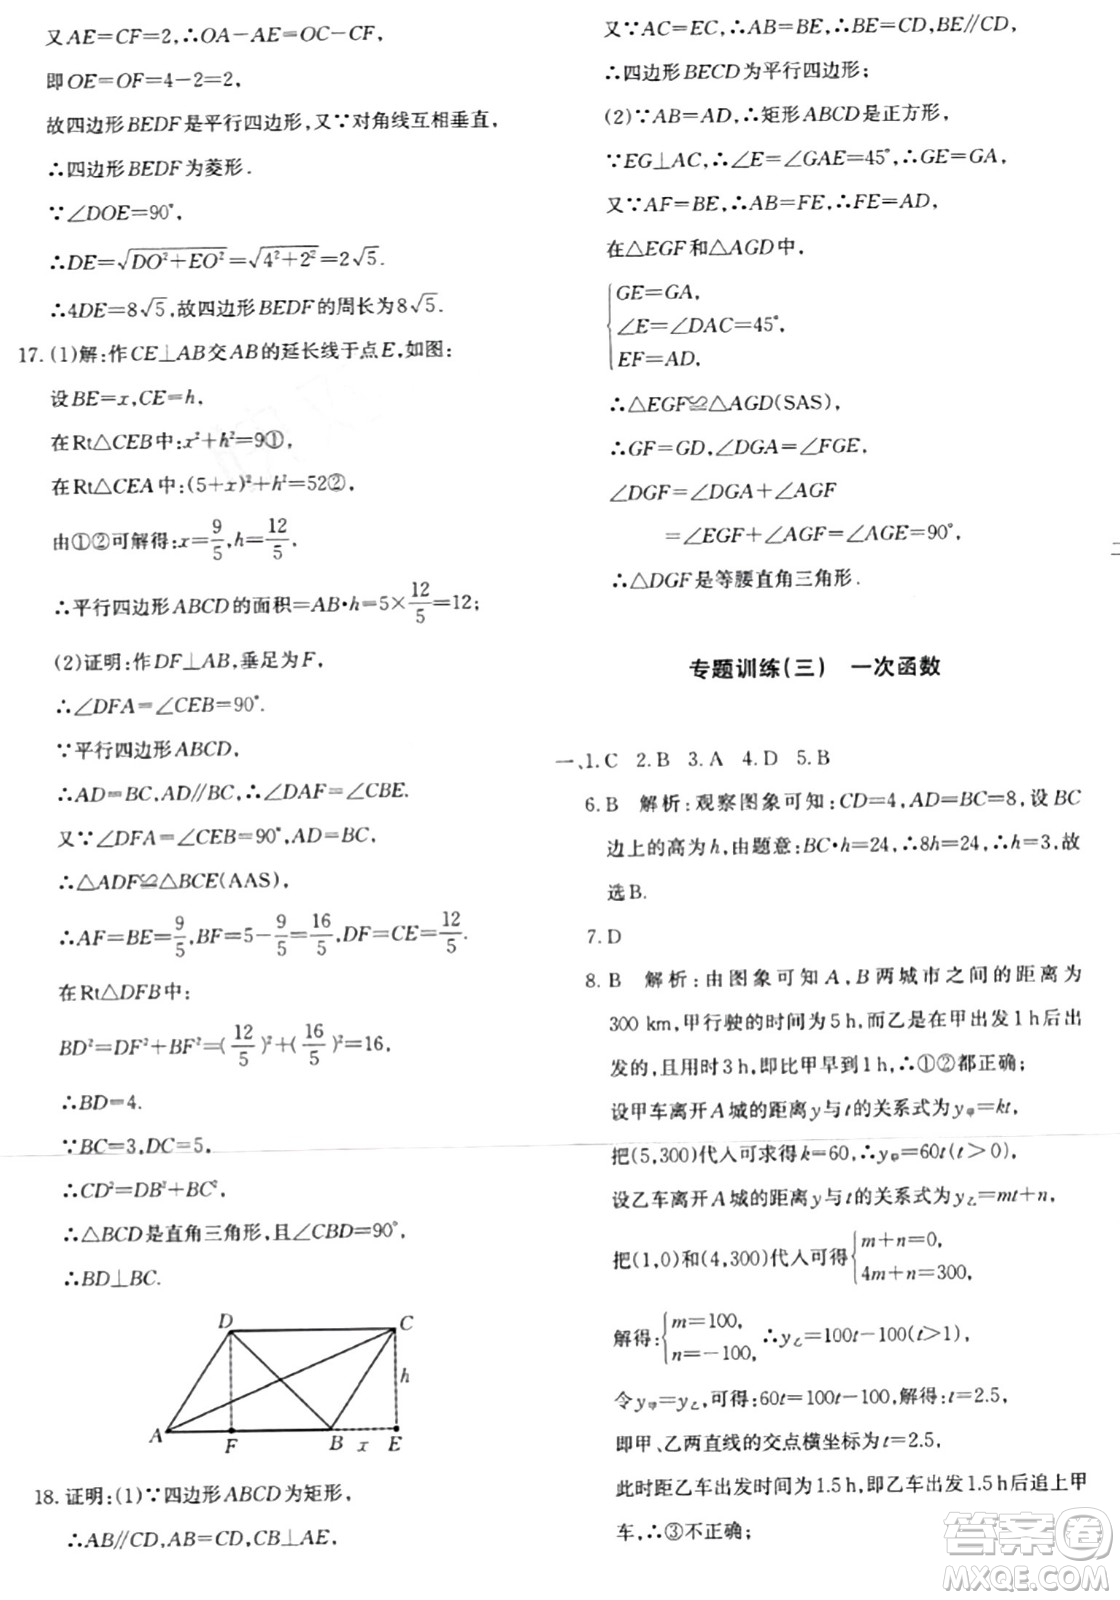 又AE=CF=2,∴OA-AE=OC-CF,
即OE=OF=4-2=2,
故四边形BEDF是平行四边形,又∵对角线互相垂直,
∴四边形BEDF为菱形.
∵∠DOE=90°,
∴DE=√(DO²+EO²)=√(4²+2²)=2√5.
∴4DE=8√5,故四边形BEDF的周长为8√5.
17.(1)解:作CE⊥AB交AB的延长线于点E,如图:
设BE=x,CE=h,
在Rt△CEB中:x²+h²=9①,
在Rt△CEA中:(5+x)²+h²=52②,
由①②可解得:x=9/5,h=12/5.
∴平行四边形ABCD的面积=AB·h=5×12/5=12;
(2)证明:作DF⊥AB,垂足为F,
∴∠DFA=∠CEB=90°.
∵平行四边形ABCD,
∴AD=BC,AD∥BC,∴∠DAF=∠CBE.
又∵∠DFA=∠CEB=90°,AD=BC,
∴△ADF≌△BCE(AAS),
∴AF=BE=9/5,BF=5-9/5=16/5,DF=CE=12/5.
在Rt△DFB中:
BD²=DF²+BF²=(12/5)²+(16/5)²=16,
∴BD=4.
∵BC=3,DC=5,
∴CD²=DB²+BC²,
∴△BCD是直角三角形,且∠CBD=90°,
∴BD⊥BC.
D C
h
A F B x E
18.证明:(1)∵四边形ABCD为矩形,
∴AB∥CD,AB=CD,CB⊥AE,
又∵AC=EC,∴AB=BE,∴BE=CD,BE∥CD,
∴四边形BECD为平行四边形;
(2)∵AB=AD,∴矩形ABCD是正方形,
∵EG⊥AC,∴∠E=∠GAE=45°,∴GE=GA,
又∵AF=BE,∴AB=FE,∴FE=AD,
在△EGF和△AGD中,
GE=GA,
∠E=∠DAC=45°,
EF=AD,
∴△EGF≌△AGD(SAS),
∴GF=GD,∠DGA=∠FGE,
∠DGF=∠DGA+∠AGF
=∠EGF+∠AGF=∠AGE=90°,
∴△DGF是等腰直角三角形.
专题训练(三) 一次函数
一、1.C 2.B 3.A 4.D 5.B
6.B 解析:观察图象可知:CD=4,AD=BC=8,设BC
边上的高为h,由题意:BC·h=24,∴8h=24,∴h=3.故
选B.
7.D
8.B 解析:由图象可知A,B两城市之间的距离为
300 km,甲行驶的时间为5 h,而乙是在甲出发1 h后出
发的,且用时3 h,即比甲早到1 h,∴①②都正确;
设甲车离开A城的距离y与t的关系式为y甲=kt,
把(5,300)代入可求得k=60,∴y甲=60t(t>0),
设乙车离开A城的距离y与t的关系式为y乙=mt+n,
把(1,0)和(4,300)代入可得{m+n=0,
4m+n=300,
解得:{m=100,
n=-100, ∴y乙=100t-100(t>1),
令y甲=y乙,可得:60t=100t-100,解得:t=2.5,
即甲、乙两直线的交点横坐标为t=2.5,
此时距乙车出发时间为1.5 h,即乙车出发1.5 h后追上甲
车,∴③不正确;
答案圈
MXQE.COM